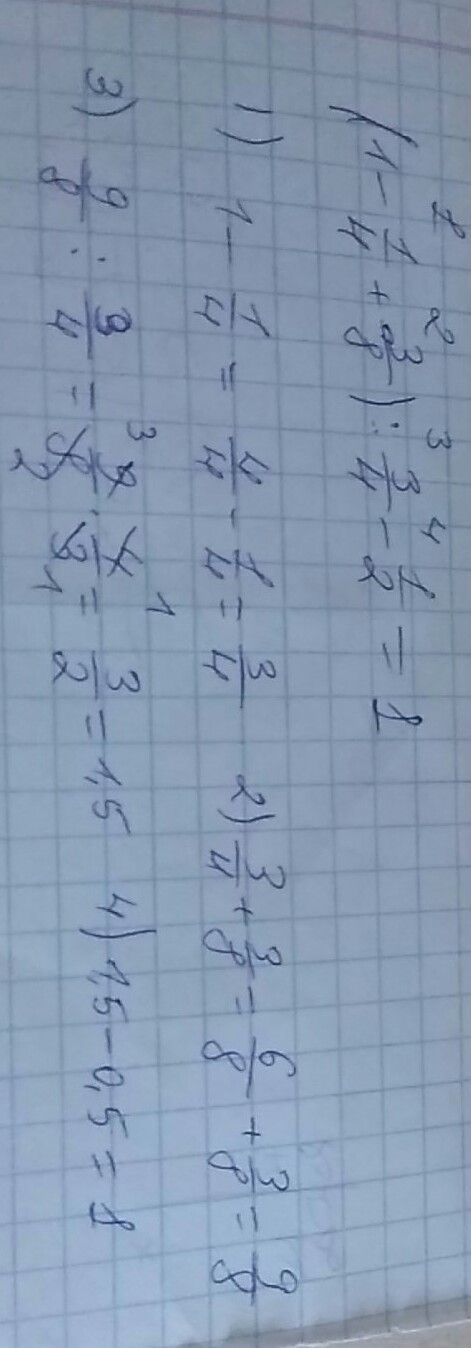 (1 - 1/4 + 3/8) : 3/4 - 1/2 = 1
1) 1 - 1/4 = 4/4 - 1/4 = 3/4 2) 3/4 + 3/8 = 6/8 + 3/8 = 9/8
3) 9/8 : 3/4 = 9/8 · 4/3 = 3/2 = 1,5 4) 1,5 - 0,5 = 1